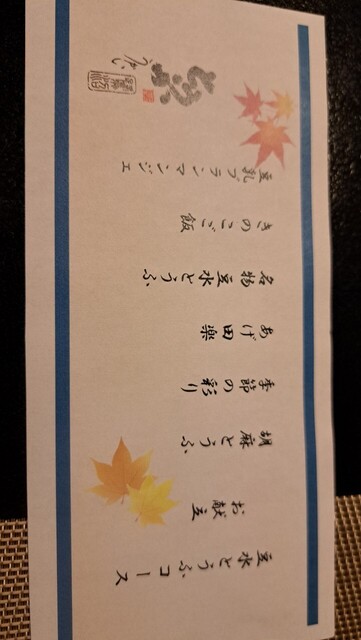 豆水とうふコース
お献立
胡麻とうふ
季節の彩り
あげ田楽
名物豆水とうふ
きのこご飯
豆乳ブランマンジェ